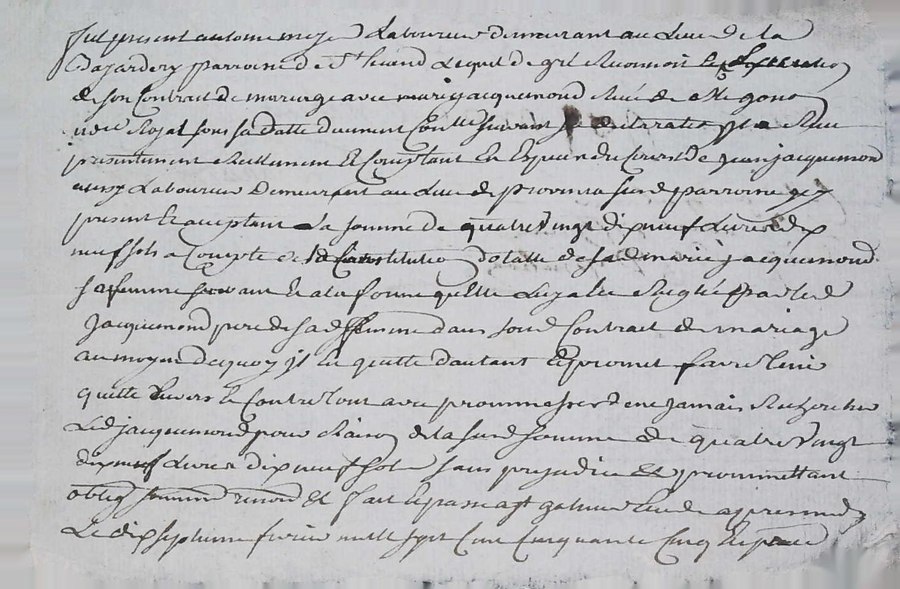 fut present antoine meye Laboureur demeurant au Lieu de la
Bajardery parroisse de St heand Lequel de gré
de son Contrat de mariage avec marie jacquemond Reçu
no.re Royal sous sa datte
presentement Reellement Et Comptant En Especes du Cours de jean jacquemond
aussy Laboureur Demeurant au Lieu de parroisse
present Et acceptant La somme de quatre Vingt dix neuf Livres dix
neuf sols a Compte de la Constitution dotalle de sad marie jacquemond
sa femme suivant Et a la forme qu'elle Luy a été Reglée par led
jacquemond pere de sad femme dans soud Contrat de mariage
au moyen de quoy il En quitte d'autant Et promet faire tenir
quitte Envers Et Contre tous avec promesse de ne jamais Rechercher
Led jacquemond pour Raison de la sud somme de quatre Vingt
dix neuf Livres dix neuf sols sans prejudice Et promettant
oblig renond Et fait Et passé a st galmier
Le dix septieme fevrier mille sept Cent Cinquante Cinq